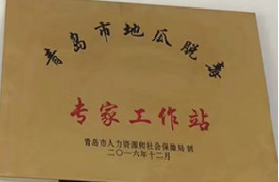 青岛市地瓜脱毒
专家工作站
青岛市人力资源和社会保障局制
二〇一六年十二月